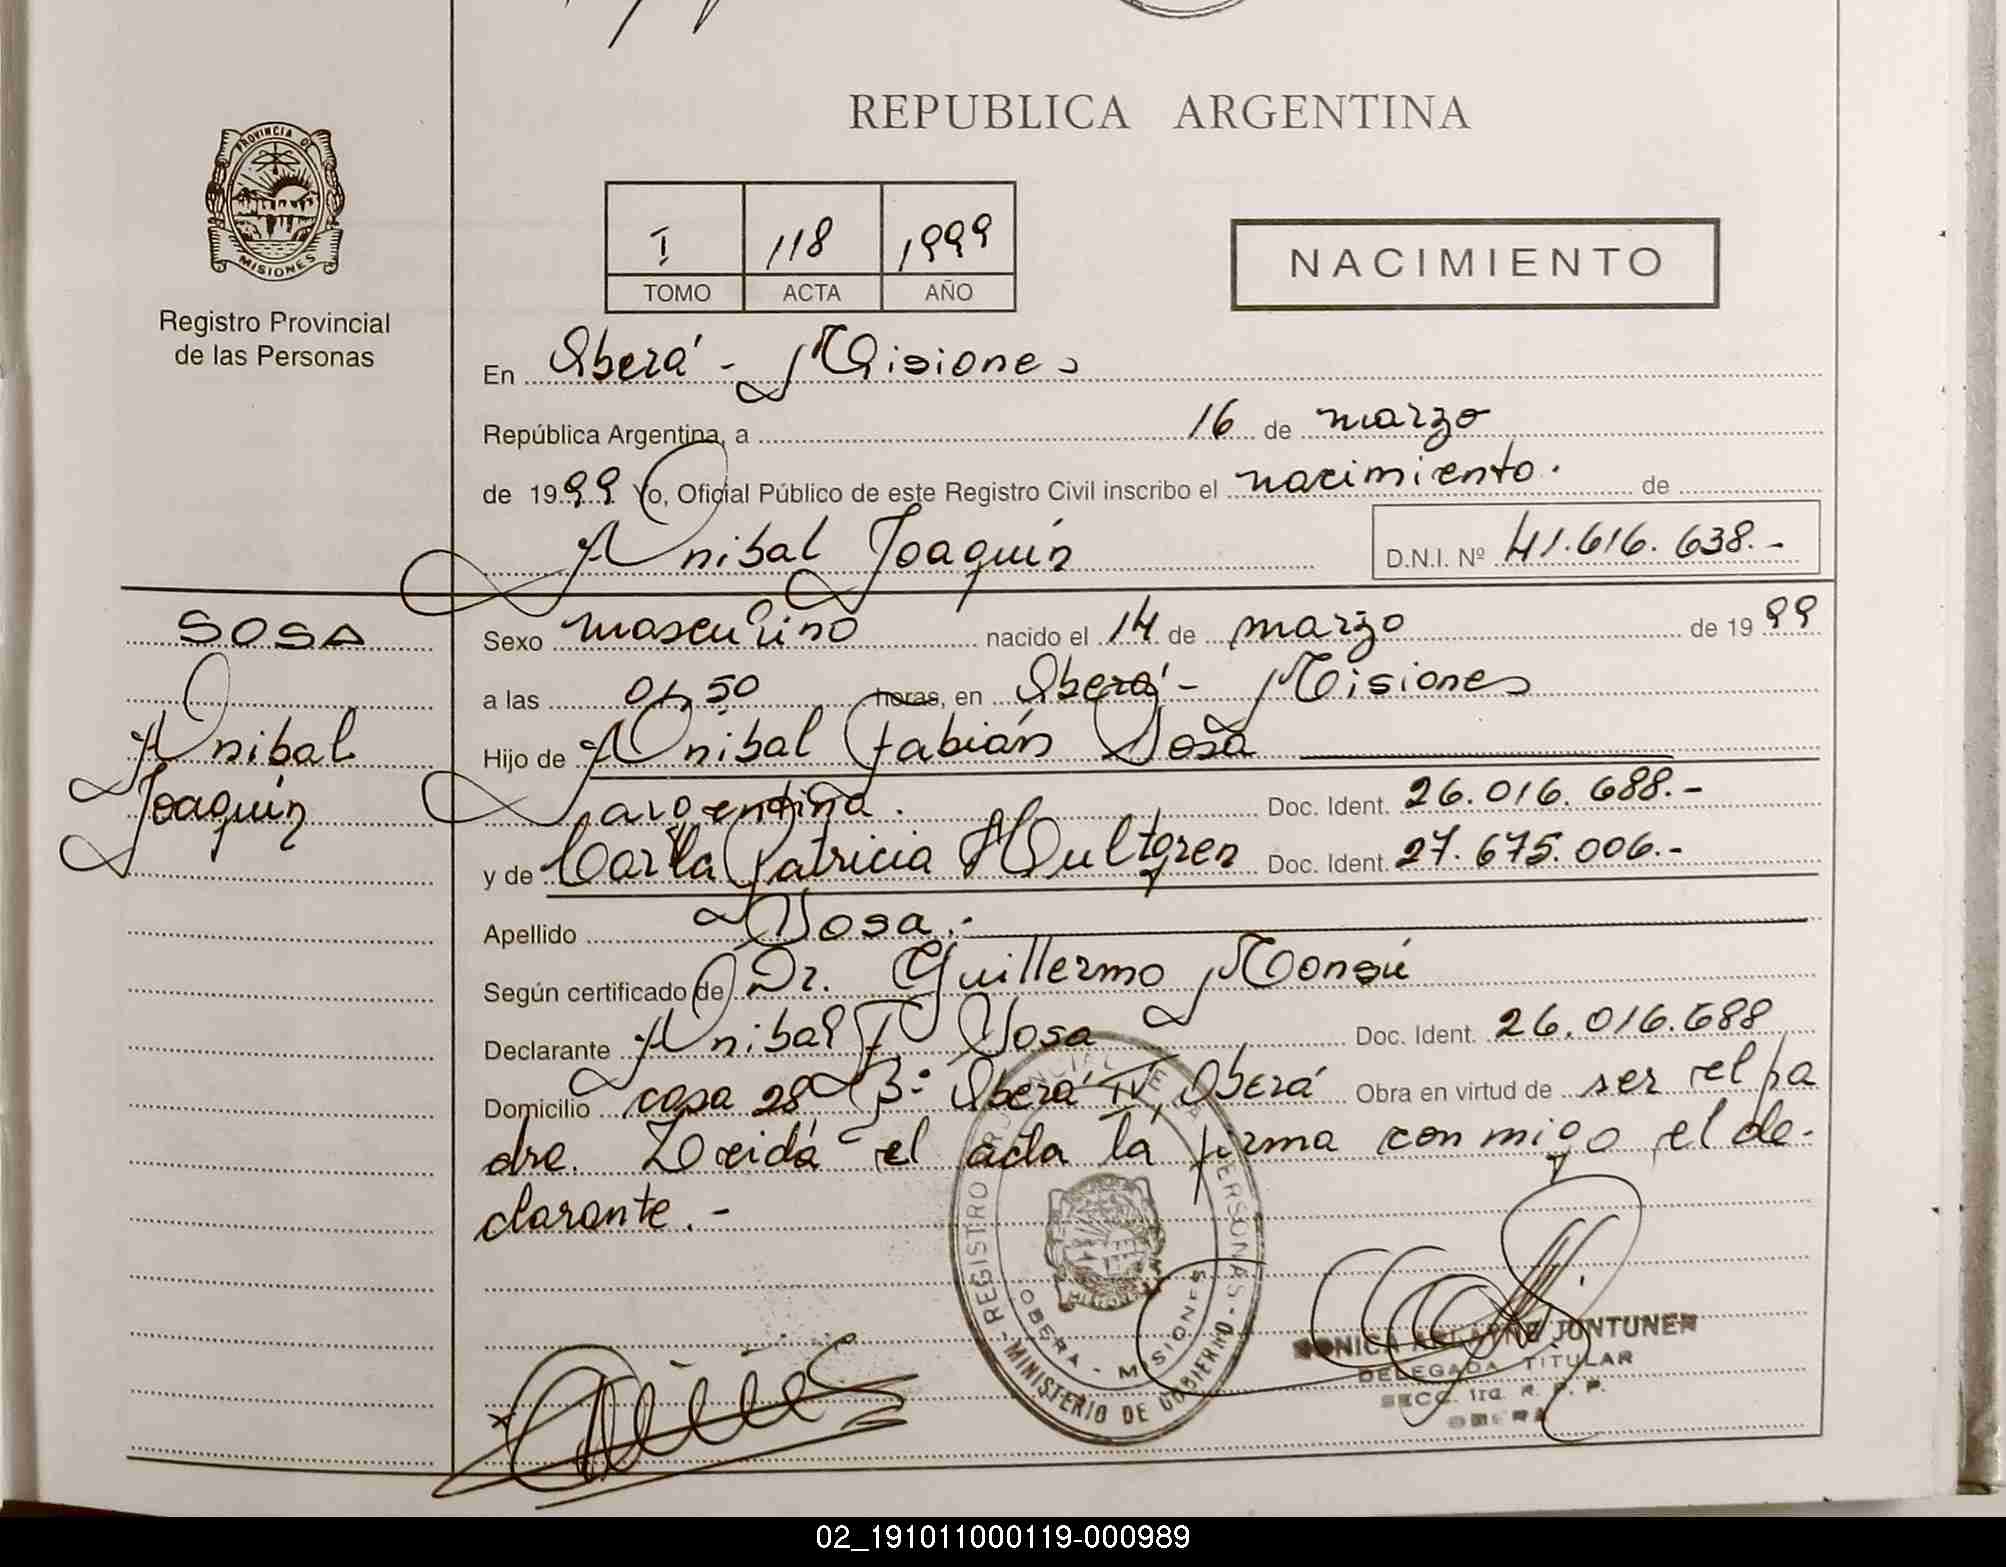 REPUBLICA ARGENTINA
PROVINCIA DE
MISIONES
Registro Provincial
de las Personas
I 118 1999
TOMO ACTA AÑO
NACIMIENTO
En Oberá - Misiones
República Argentina, a 16 de marzo
de 1999 Yo, Oficial Público de este Registro Civil inscribo el nacimiento. de
Anibal Joaquín
D.N.I. Nº 41.616.638.-
SOSA
Anibal
Joaquín
Sexo masculino nacido el 14 de marzo de 1999
a las 01,50 horas, en Oberá - Misiones
Hijo de Anibal Fabián Sosa
argentina. Doc. Ident. 26.016.688.-
y de Carla Patricia Hultgren Doc. Ident. 27.675.006.-
Apellido Sosa.-
Según certificado de Dr. Guillermo Monsú
Declarante Anibal F Sosa Doc. Ident. 26.016.688
Domicilio casa 28 Bº Oberá IV, Oberá Obra en virtud de ser el pa
dre. Leida el acta la firma conmigo el de-
clarante.-
REGISTRO PROVINCIAL DE LAS PERSONAS
OBERA - MISIONES
MINISTERIO DE GOBIERNO
JUNTUNEN
DELEGADA TITULAR
SECC. 1ra. R. P. P.
OBERA
02_191011000119-000989